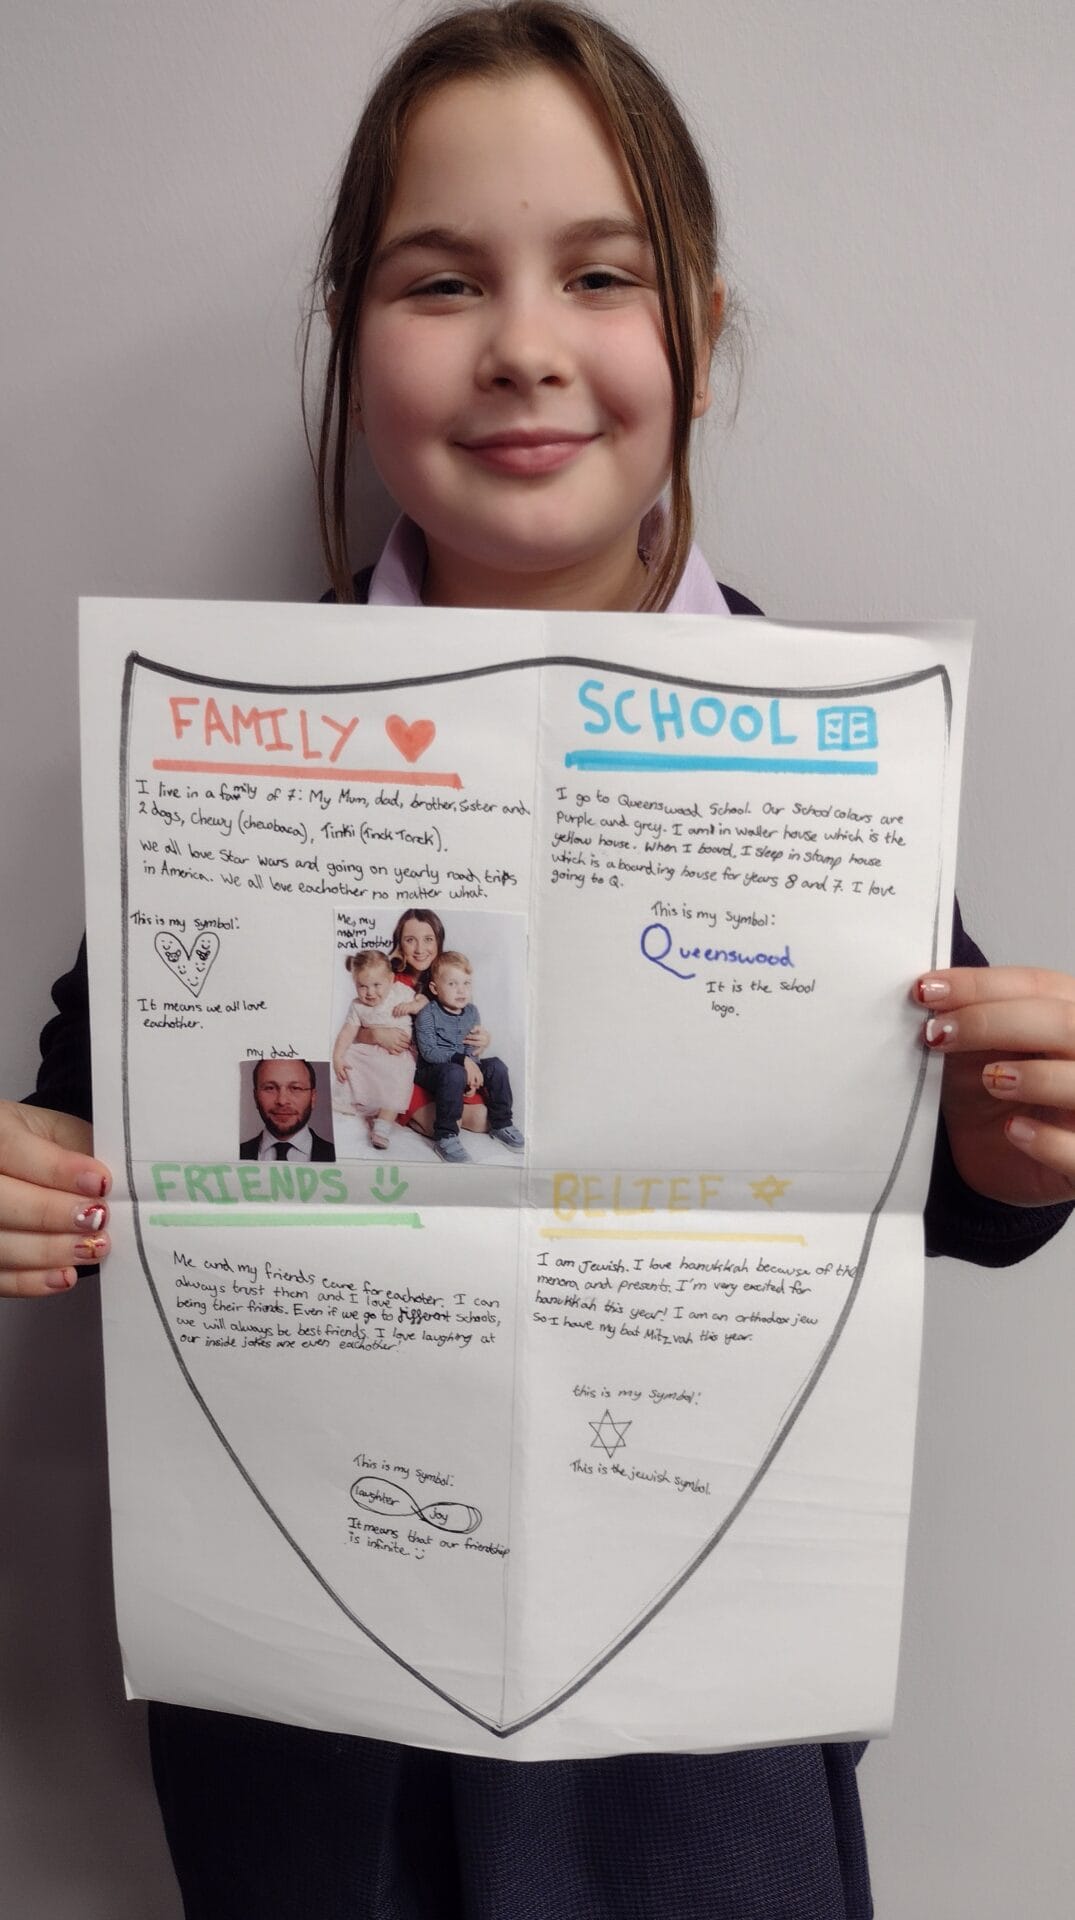 FAMILY
I live in a family of 7: My Mum, dad, brother, sister and
2 dogs, Chewy (chewbaca), Tinki (Tinck Tonck).
We all love Star Wars and going on yearly road trips
in America. We all love eachother no matter what.
This is my symbol:
It means we all love
eachother.
Me, my
mum
and brother
my dad
SCHOOL
I go to Queenswood School. Our School colours are
Purple and grey. I am in waller house which is the
yellow house. When I board, I sleep in stamp house
which is a boarding house for years 8 and 7. I love
going to Q.
This is my symbol:
Queenswood
It is the school
logo.
FRIENDS
Me and my friends care for eachoter. I can
always trust them and I love
being their friends. Even if we go to different schools,
we will always be best friends. I love laughing at
our inside jokes are even eachother!
This is my symbol:
laughter
joy
It means that our friendship
is infinite.
BELIEF
I am Jewish. I love hanukkah because of the
menora and presents. I'm very excited for
hanukkah this year! I am an orthodox jew
so I have my bat Mitzvah this year.
this is my symbol:
This is the jewish symbol.